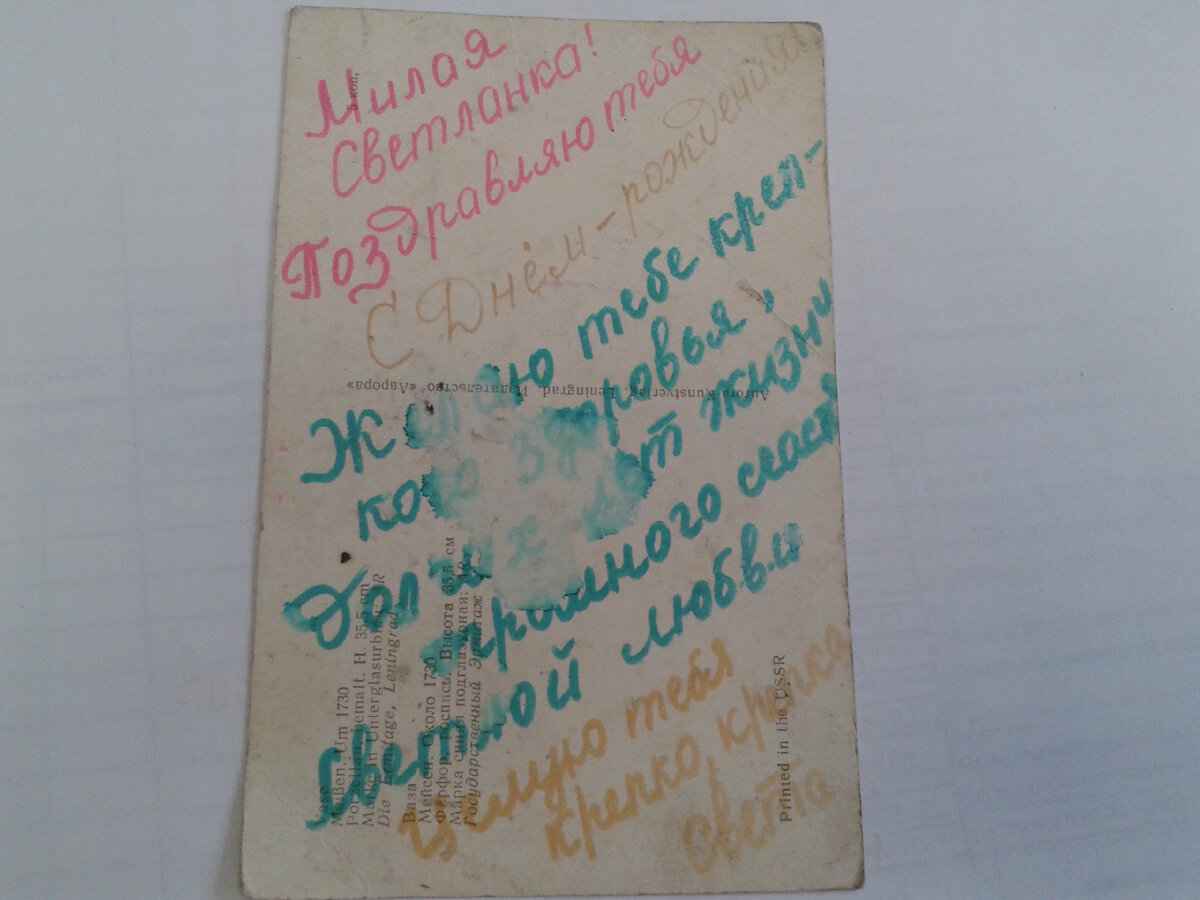 Милая
Светланка!
Поздравляю тебя
С Днём-рождения!
Желаю тебе креп-
кого здоровья,
Долгих лет жизни
огромного счасть
Светлой любви
Целую тебя
крепко, крепко
Света
5 коп.
Aurora-Kunstverlag, Leningrad. Издательство «Аврора»
Vase
Meißen. Um 1730
Porzellan, bemalt. H. 35,5 cm
Marke in Unterglasurblau: AR
Die Ermitage, Leningrad
Ваза
Мейсен. Около 1730
Фарфор, роспись. Высота 35,5 см
Марка синяя подглазурная: AR
Государственный Эрмитаж
Printed in the USSR